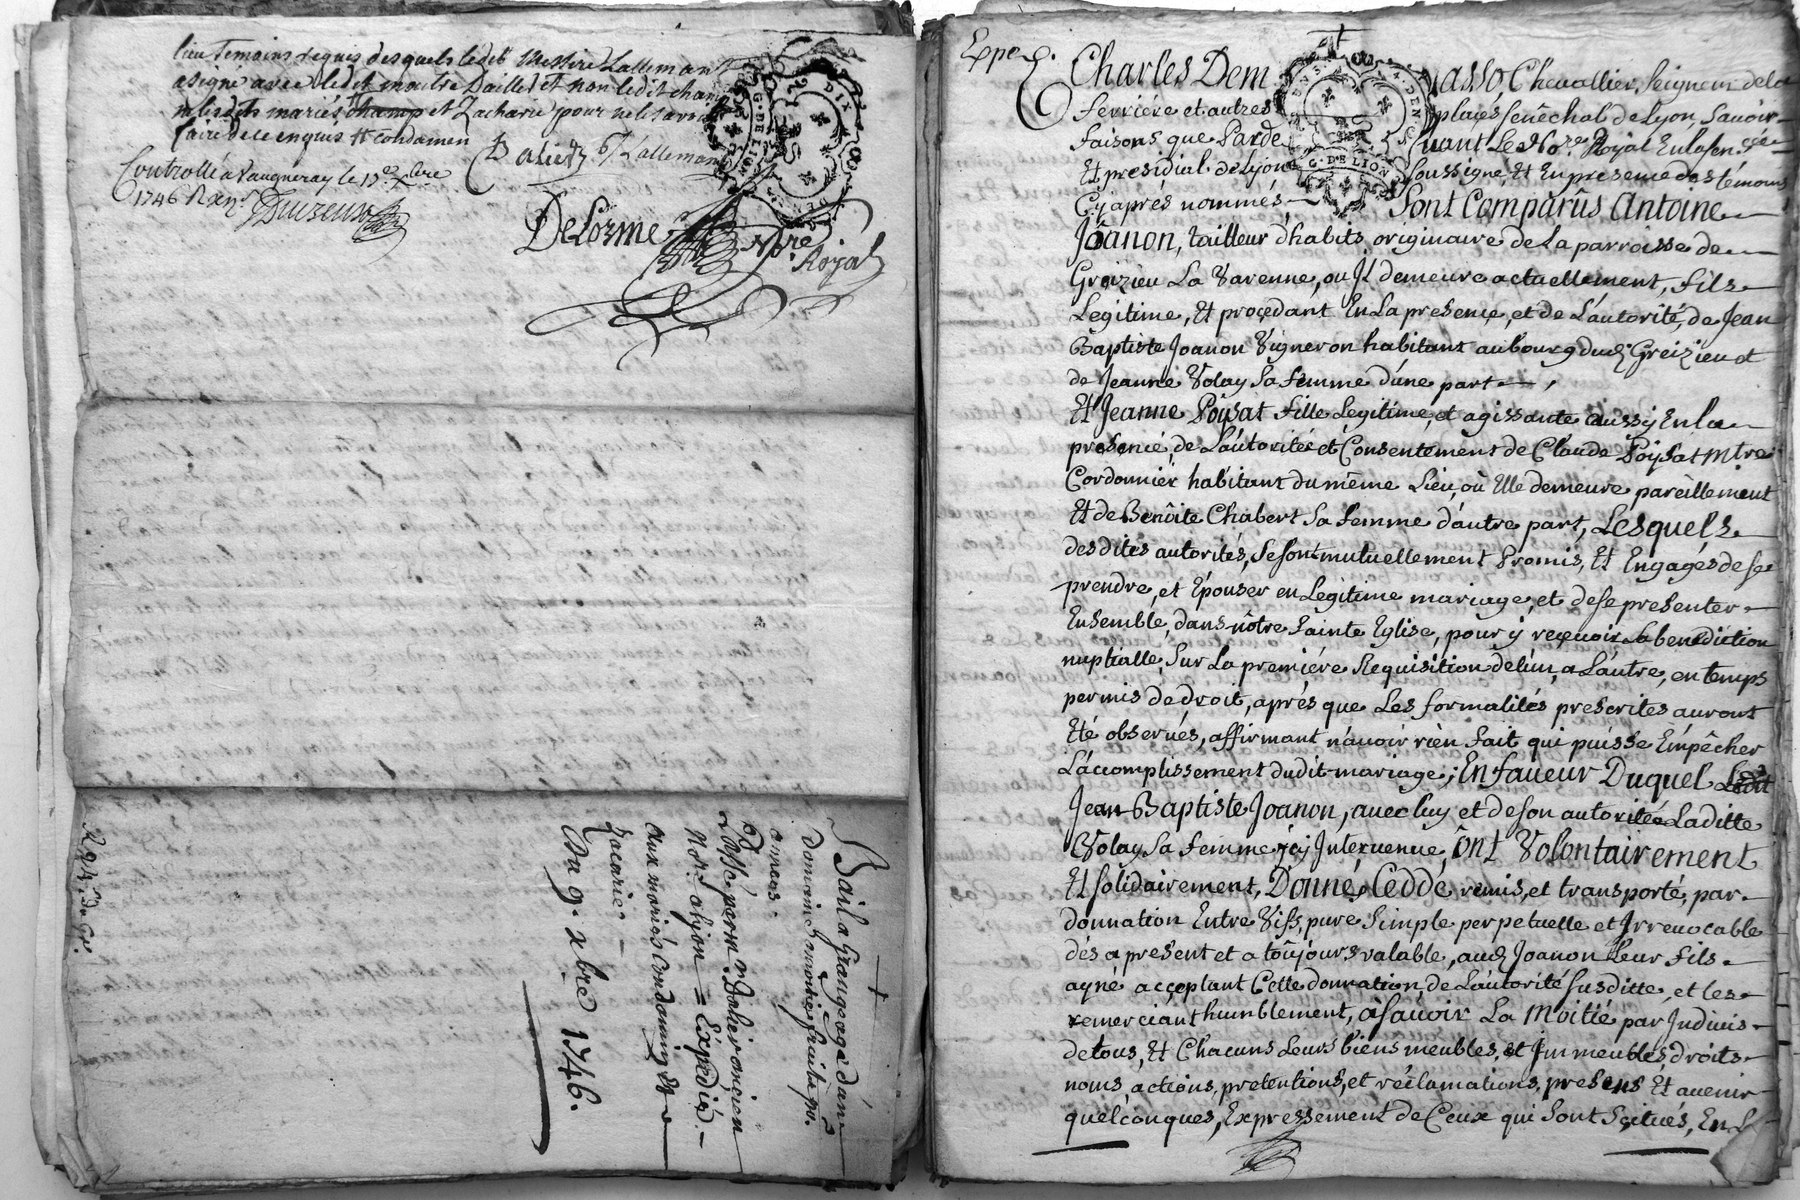 lieu temoins requis desquels ledit Messire Lallemant
a signé avec ledit maitre Dallier et non ledit champ
ny lesdits mariés champ et Zacharie pour ne le savoir
faire de ce enquis et condamen
Dalier Lallemant
Controllé à Vaugneray le 19e xbre
1746 Rx
DeLorme Nore Royal
G. DE LION
DIX DEN
Bail a Grangeage d'un
domaine a moitié fruits po.
années.
Passé par m. Dalier ancien
Nore. a lyon = Expédié. —
aux mariés Condamin et
Zacarie. —
Du 9. xbre 1746.
Expe.
Charles Dem asso, Chevallier, Seigneur de la
ferriere et autres places senêchal de Lyon, Savoir
faisons que Parde vant Le Nore. Royal En la sen.sée
Et presidial de Lyon Soussigné, Et En presence des témoins
Cy après nommés — Sont Comparûs Antoine
G. DE LION
Joanon, tailleur d'habits originaire de la parroisse de
Greizieu La Varenne, ou Il demeure actuellement, fils
Legitime, Et proçedant En La presençe, et de L'autorité, de Jean
Baptiste Joanon Vigneron habitant au bourg dud. Greizieu et
de Jeanne Volay Sa femme d'une part —
Et Jeanne Poÿsat fille Legitime, et agissante aussy En la
presence, de L'autorité et Consentement de Claude Poÿsat Mtre
Cordonnier habitant du même Lieu, où Elle demeure pareillement
Et de Benôite Chabert Sa femme d'autre part, Lesquels
des dites autorités, Se sont mutuellement Promis, Et Engagés de se
prendre, et Epouser en Légitime mariage, et de se presenter
Ensemble, dans nôtre Sainte Eglise, pour ÿ reçevoir la benediction
nuptialle, Sur La premiére Requisition de l'un, a L'autre, en temps
permis de droit, après que Les formalités prescrites auront
Eté observés, affirmant n'avoir rien fait qui puisse Empêcher
L'accomplissement dudit mariage; En faveur Duquel Ledit
Jean Baptiste Joanon, avec luy et de son autorité Laditte
Volay Sa femme icy Intervenue, ônt Volontairement
Et solidairement, Donné, Ceddé remis, et transporté, par
donnation Entre Vifs, pure Simple perpetuelle et Irrevocable
dès a present et a toûjours valable, aud. Joanon Leur fils
ayné acçeptant Cette donnation, de L'autorité susditte, et les
remerciant humblement, àsavoir La Moitié par Indivis
de tous, Et Chacuns Leurs biens meubles, et Immeubles, droits
noms, actions, pretentions, et réclamations, presens Et avenir
quelçonques, Expressement de Ceux qui sont Scitués, En L